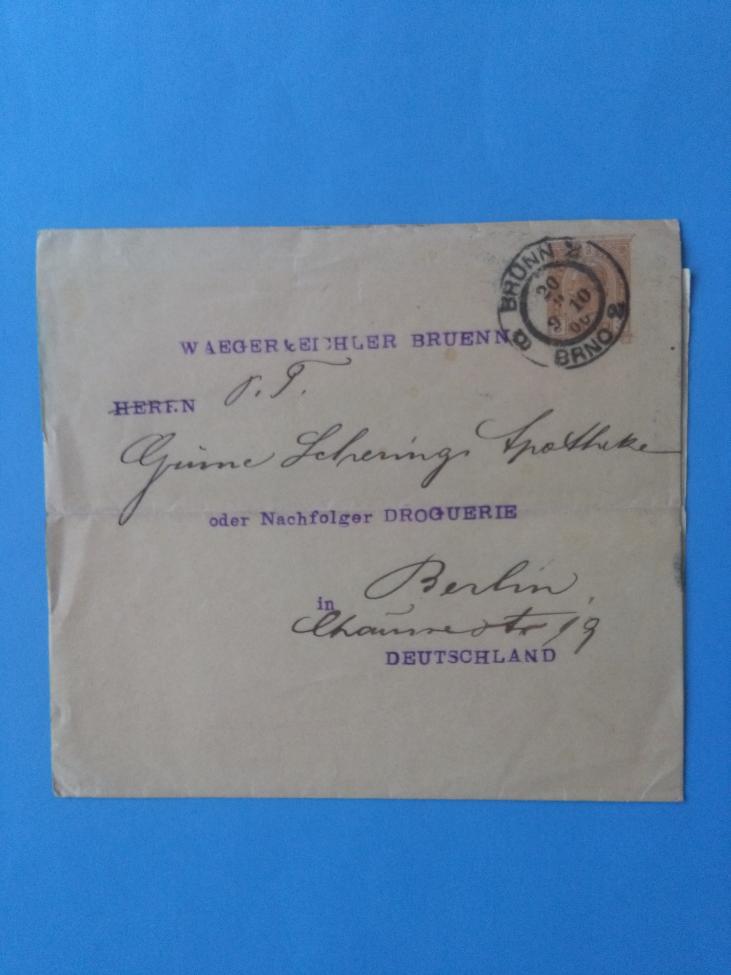 BRÜNN 2
BRNO 2
20 10
9 00
WAEGER & EICHLER BRUENN
P. T.
HERREN
Grüne Scherings Apotheke
oder Nachfolger DROGUERIE
in Berlin,
Chausseestr 19
DEUTSCHLAND